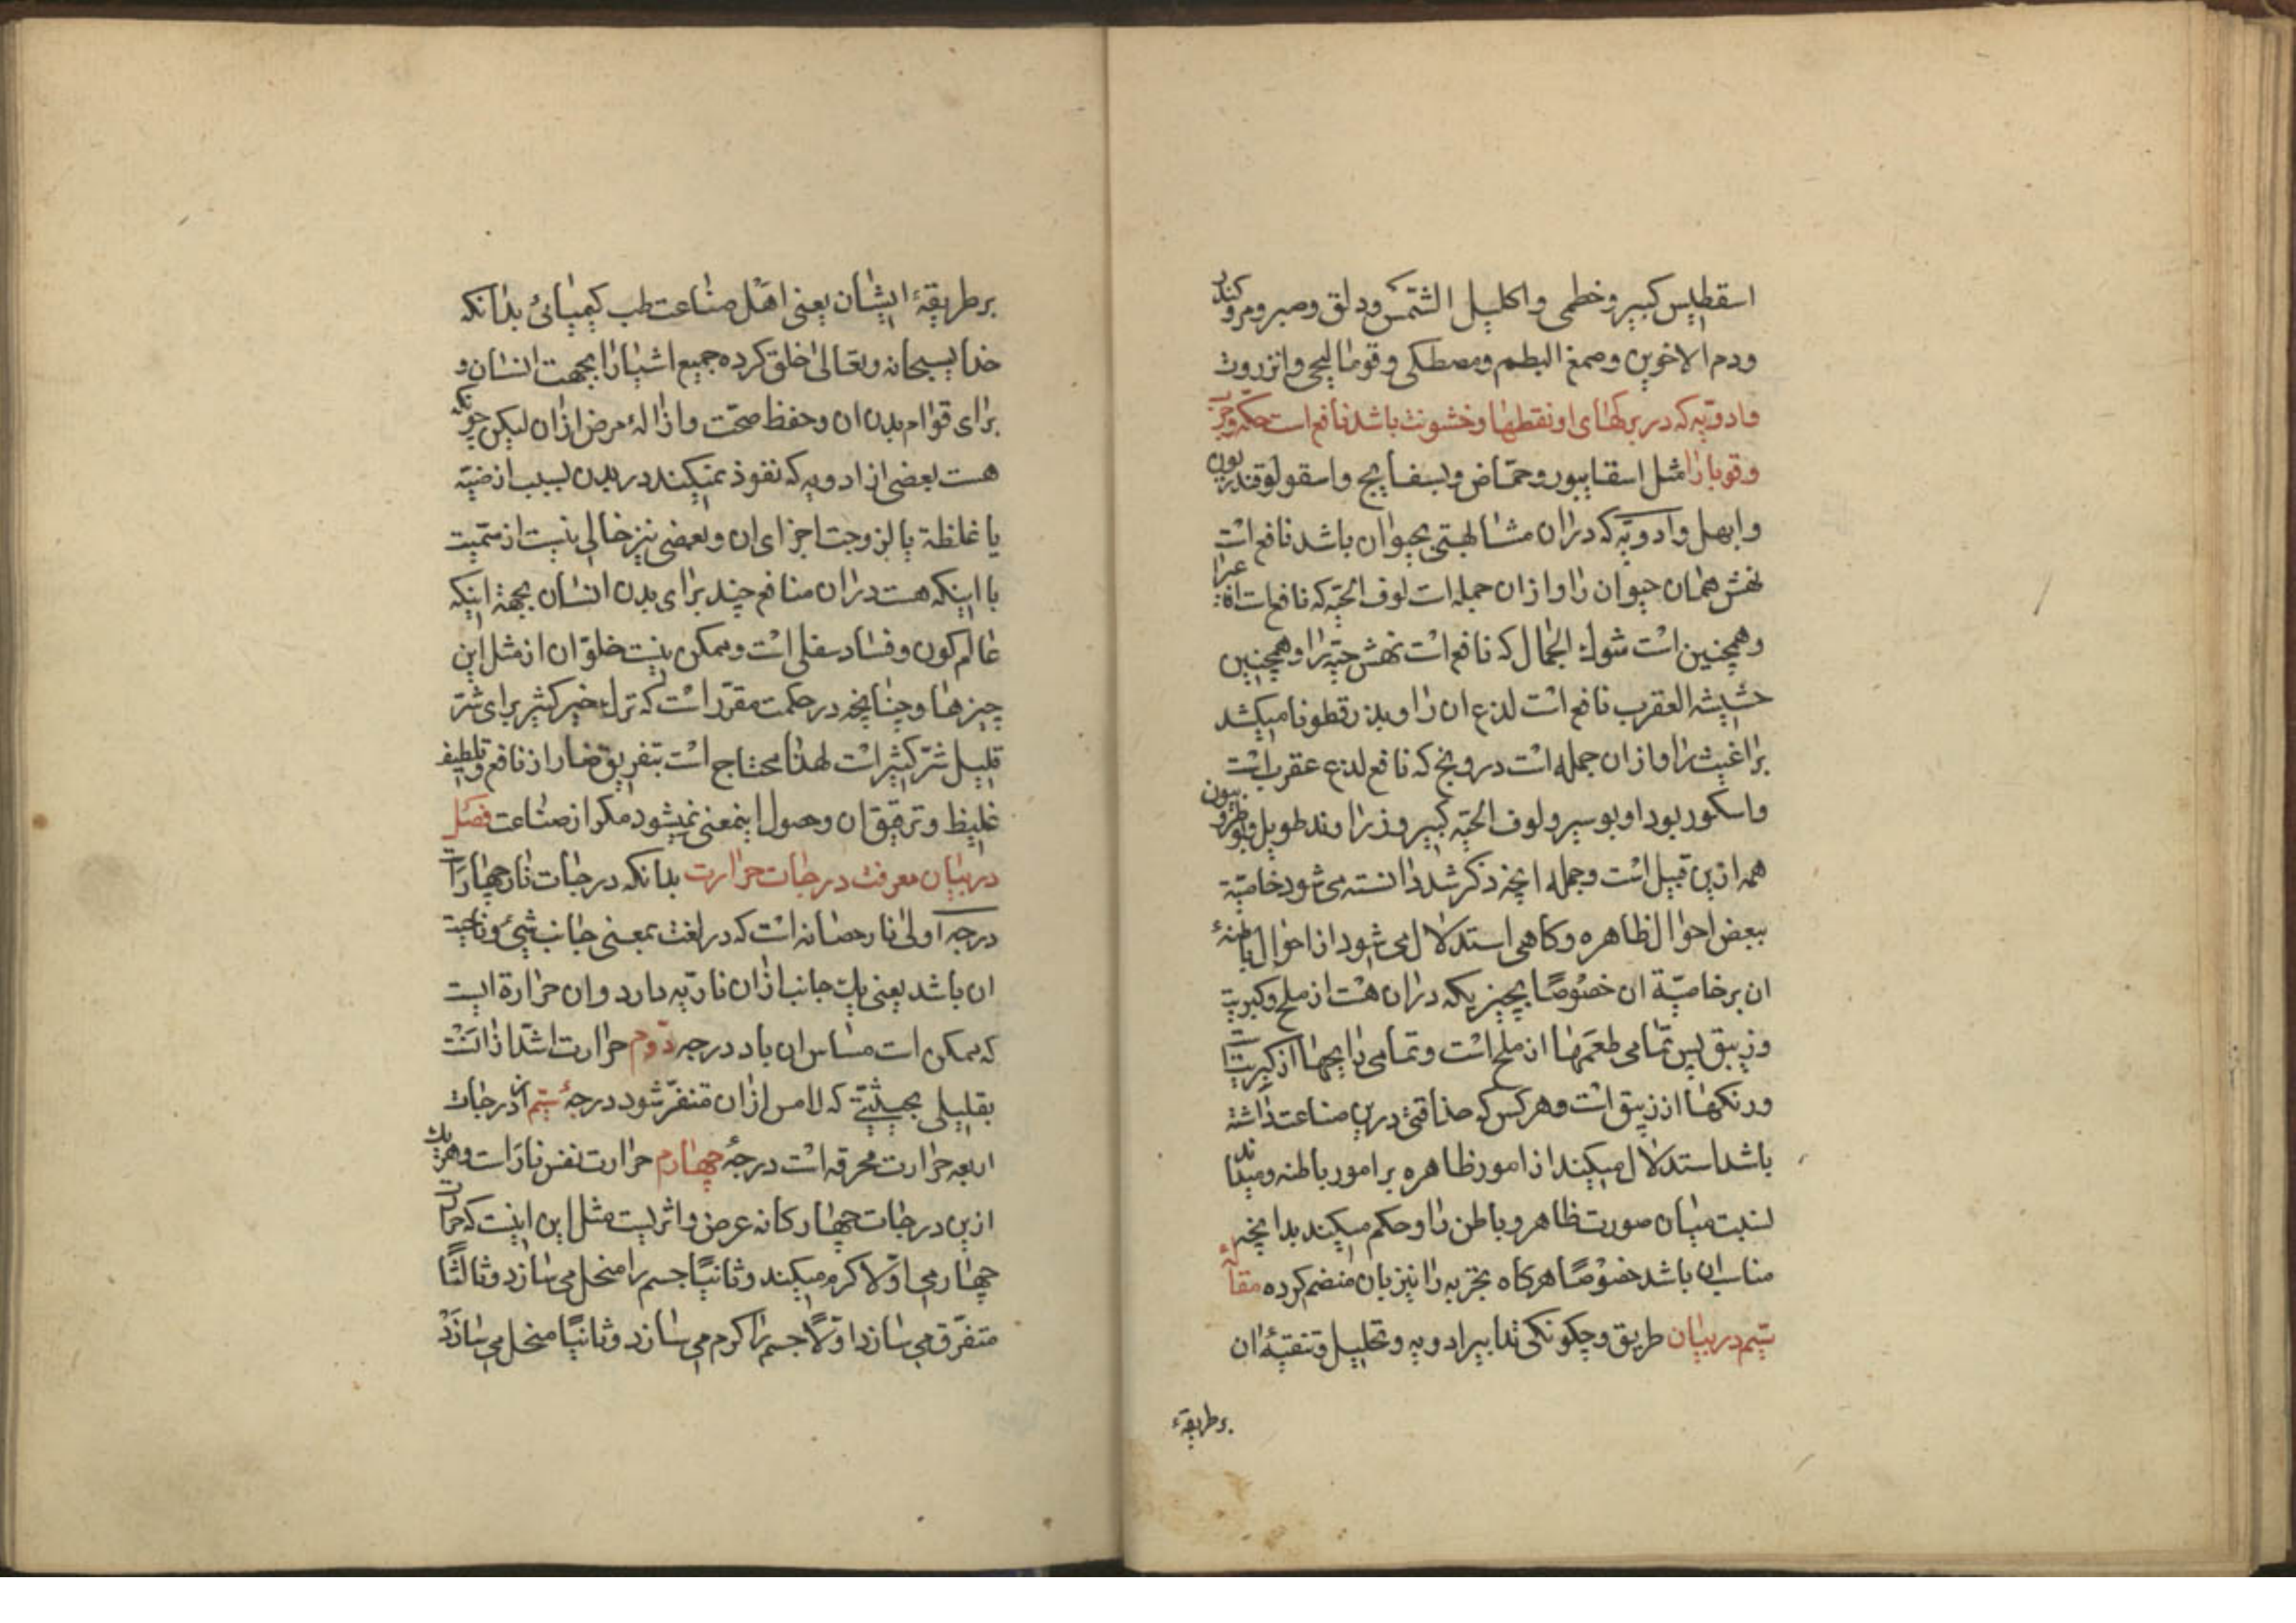 اسقطیس کبیر و خطمی و اکلیل الشمس و دلق و صبر و مر و کندر
و دم الاخوین و صمغ البطم و مصطکی و قوما لیحی و انزروت
و ادویه که در برکهای او نقطها و خشونت باشد نافع است حکه و جرب
و قوبا را مثل اسقابیور و حمّاض و بسفایج و اسقولوقندریون
و ابهل و ادویّه که دران مشابهتی بحیوان باشد نافع است
نهش همان حیوان را و ازان جمله است لوف الحیّه که نافع است افعی را
و همچنین است شوك الجمال که نافع است نهش حیّه را و همچنین
حشیشه العقرب نافع است لدغ ان را و بذرقطونا میکشد
براغیث را و ازان جمله است درونج که نافع لدغ عقرب است
و اسکوربود او بوسیر و لوف الحیّه کبیر و زراوند طویل و
همه ازین قبیل است و جمله انچه ذکر شد دانسته می شود خاصیّة
ببعض احوال ظاهره و کاهی استدلال می شود از احوال باطنهٔ
ان بر خاصیّة ان خصوصًا بچیزیکه دران هست از ملح و کبریت
و زیبق پس تمامی طعمها از ملح است و تمامی رایحها از کبریت
و رنکها از زیبق است و هر کس که حذاقتی درین صناعت داشته
باشد استدلال میکند از امور ظاهره بر امور باطنه و میداند
نسبت میان صورت ظاهر و باطن را و حکم میکند بدانچه
مناسب ان باشد خصوصًا هرکاه تجربه را نیز بان منضم کرده مقالهٔ
سیم در بیان طریق و چکونکی تدابیر ادویه و تحلیل و تنقیهٔ ان
بر طریقهٔ
بر طریقهٔ ایشان یعنی اهل صناعت طب کیمیائی بدانکه
خدا سبحانه و تعالی خلق کرده جمیع اشیا را بجهت انسان و
برای قوام بدن ان و حفظ صحّت و ازالهٔ مرض ازان لیکن چونکه
هست بعضی از ادویه که نفوذ نمیکند در بدن بسبب ارضیّه
یا غلظة یا لزوجت اجزای ان و بعضی نیز خالی نیست از سمّیت
با اینکه هست دران منافع چند برای بدن انسان بجهة اینکه
عالم کون و فساد سفلی است و ممکن نیست خلوّ ان از مثل این
چیزها و چنانچه در حکمت مقرّر است که ترك خیر کثیر برای شرّ
قلیل شرّ کثیر است لهذا محتاج است بتفریق ضار از نافع و تلطیف
غلیظ و ترقیق ان و حصول اینمعنی نمیشود مکر از صناعت فصل
در بیان معرفت درجات حرارت بدانکه درجات نار چهار است
درجه اولی نار حضانه است که در لغت بمعنی جانب شئ و ناحیت
ان باشد یعنی یك جانب ازان ناریّه دارد و ان حرارة ایست
که ممکن است مساس ان باد درجه دوم حرارت اشدّ ازانست
بقلیلی بحیثیّتی که لامس ازان متنفّر شود درجهٔ سیم از درجات
اربعه حرارت محرقه است درجهٔ چهارم حرارت نفس نار است و هر یك
ازین درجات چهارکانه عرض و اثریست مثل این اینست که حرارت
چهارمی اوّلا کرم میکند و ثانیًا جسم را منحل می سازد و ثالثًا
متفرّق می سازد اوّلًا جسم را کرم می سازد و ثانیًا منحل می سازد